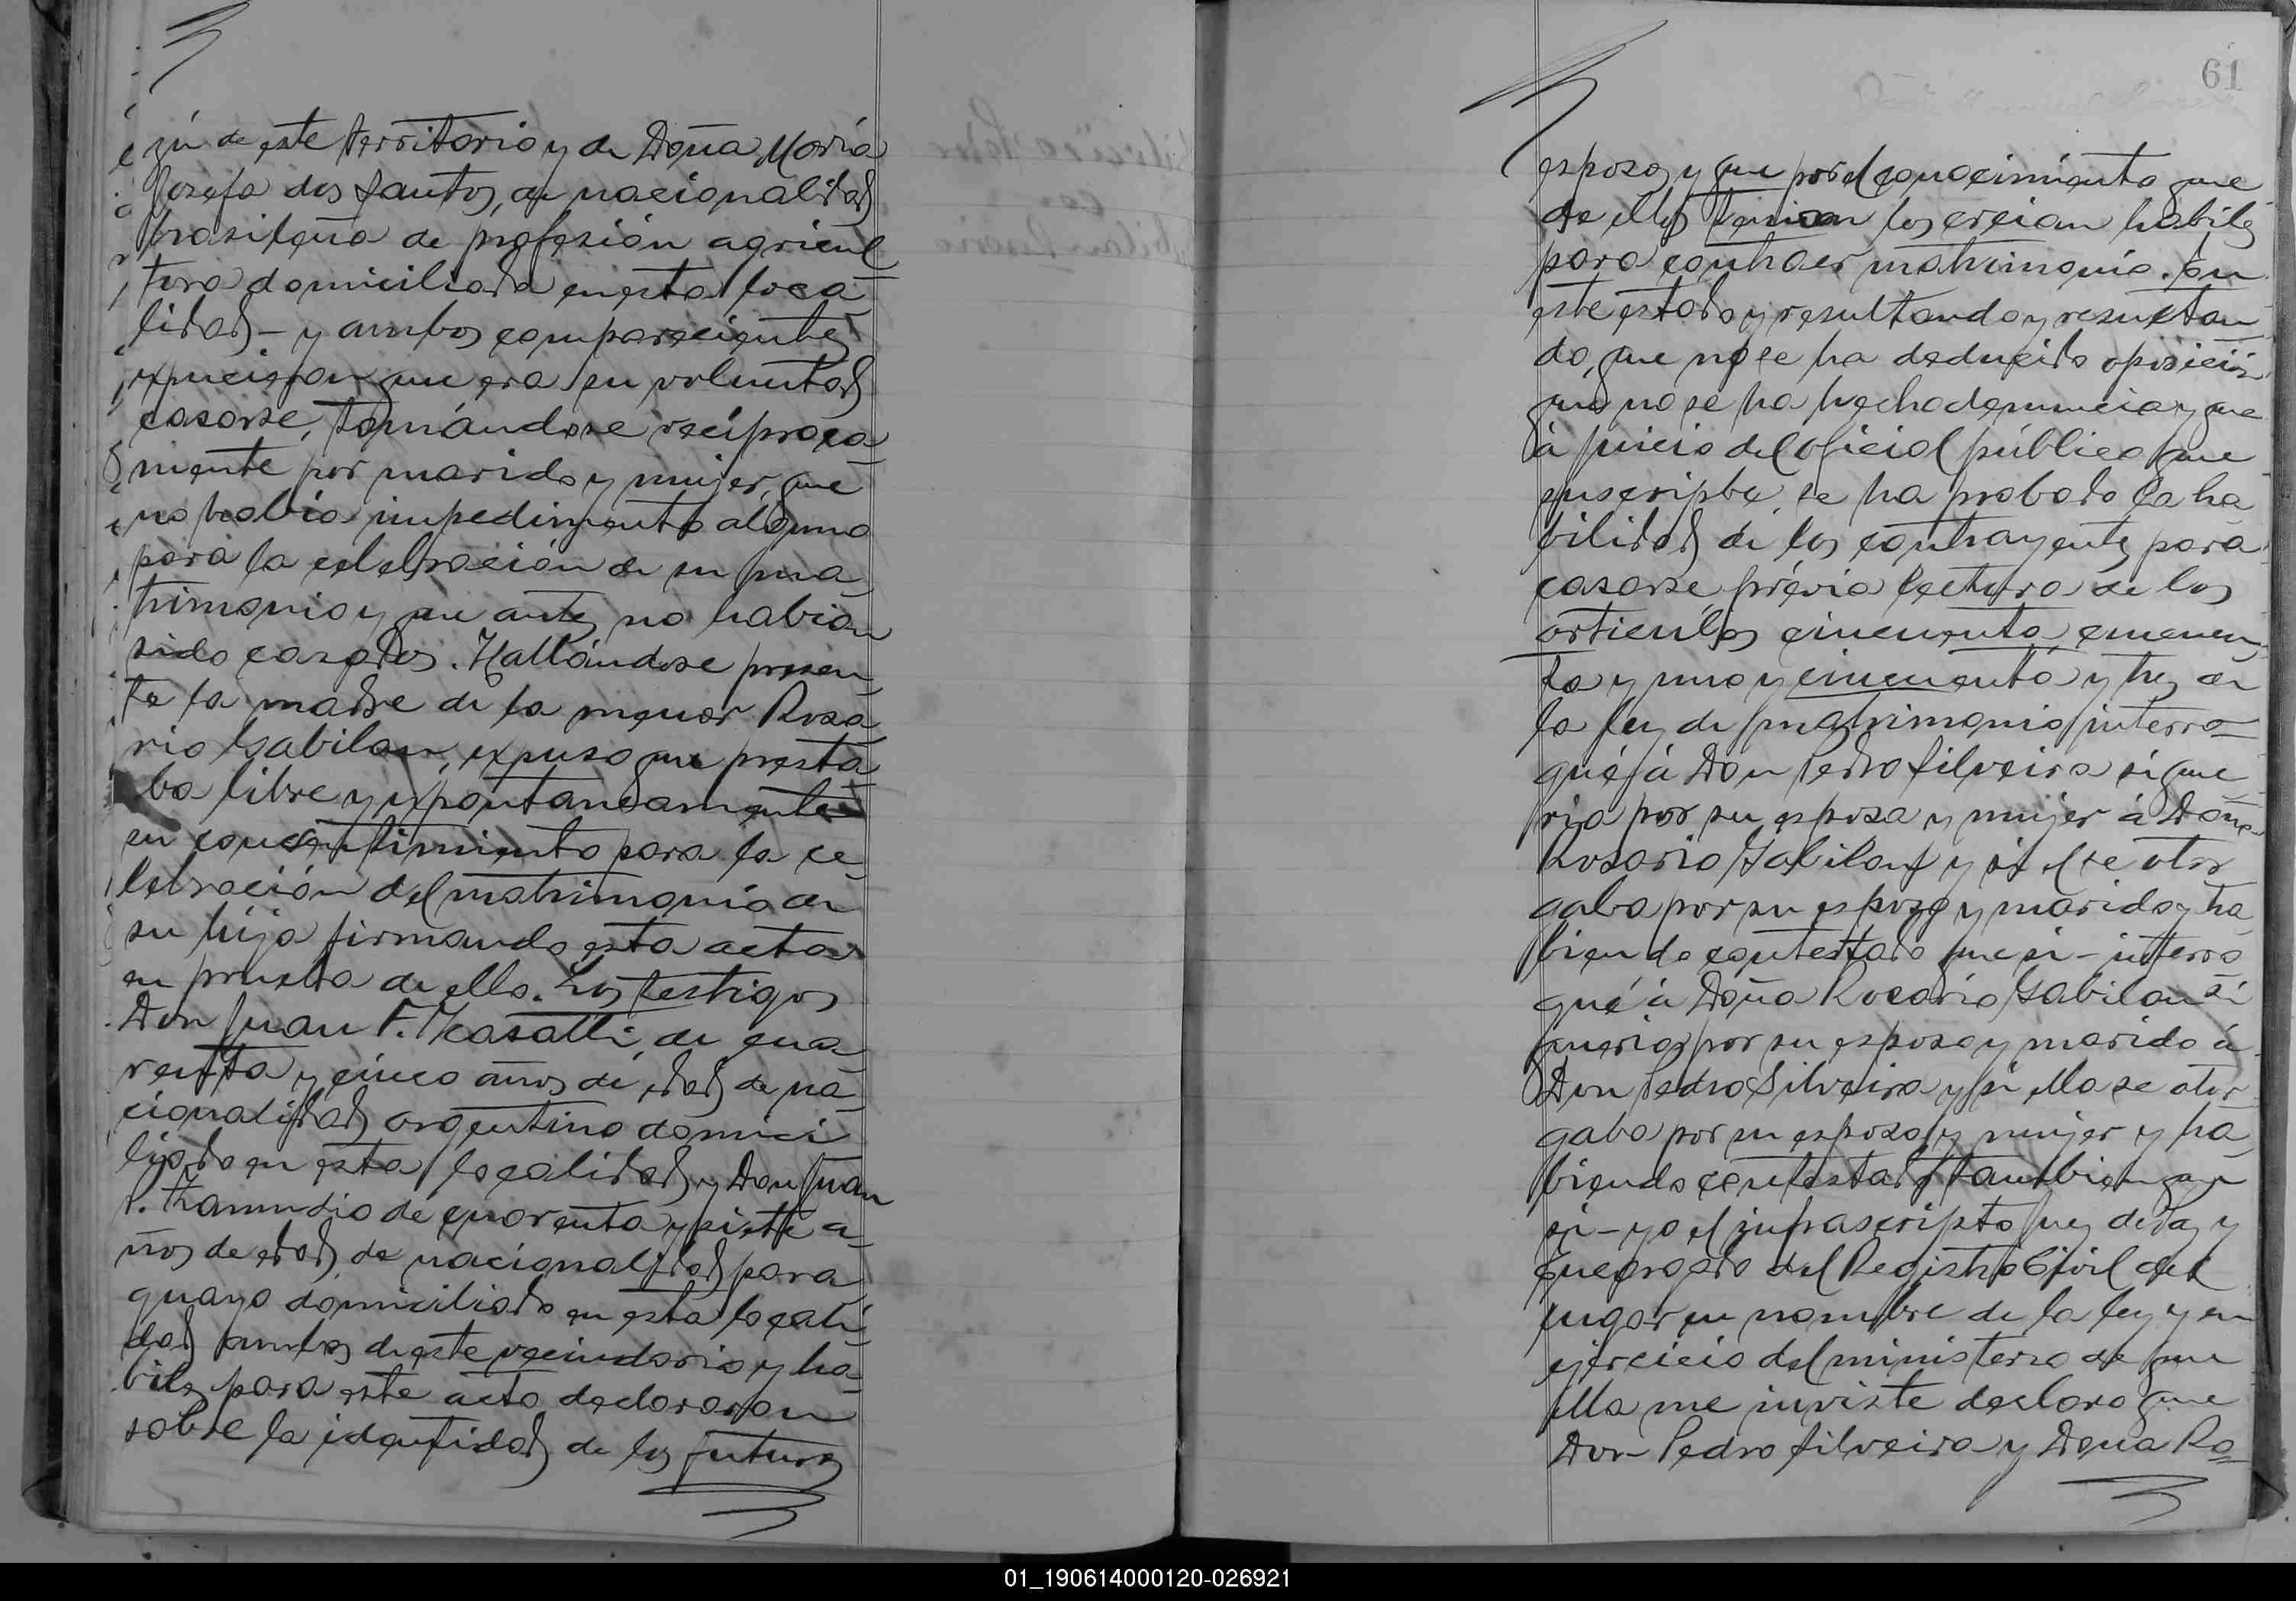 zú de este territorio y de Doña María
Josefa dos Santos, de nacionalidad
brasileña de profesión agricul
tora domiciliada en esta loca
lidad – y ambos comparecientes
expusieron que era su voluntad
casarse, tomándose recíproca
mente por marido y mujer, que
no había impedimento alguno
para la celebración de su ma
trimonio y que antes no habian
sido casados. Hallándose presen
te la madre de la menor Rosa
rio Gabilan, expuso que presta
ba libre y espontaneamente
su consentimiento para la ce
lebración del matrimonio de
su hija firmando esta acta
en prueba de ello. Los testigos
Don Juan F. de cua
renta y cinco años de edad de na
cionalidad argentino domici
liado en esta localidad y Don Juan
de cuarenta y siete a
ños de edad, de nacionalidad para
guayo domiciliado en esta locali
dad ambos de este vecindario y ha
biles para este acto declararon
sobre la identidad de los futuros
61
esposos y que por el conocimiento que
de ellos tenian los creian habiles
para contraer matrimonio. En
este estado y resultando y resultan
do, que no se ha deducido oposición
que no se ha hecho denuncia y que
á juicio del oficial público que
suscribe, se ha probado la ha
bilidad de los contrayentes para
casarse prévia lectura de los
articulos cincuenta cincuen
ta y uno y cincuenta y tres de
la ley de matrimonio interro
gué á Don Pedro Silveira si que
ria por su esposa y mujer á Doña
Rosario Gabilan y si el se otor
gaba por su esposo y marido y ha
biendo contestado que si – interro
gué á Doña Rosario Gabilan si
queria por su esposo y marido á
Don Pedro Silveira y si ella se otor
gaba por su esposa y mujer y ha
biendo contestado tambien que
si – yo el infrascripto Juez de Paz y
Encargado del Registro Civil del
lugar en nombre de la ley y en
ejercicio del ministerio de que
ella me inviste declaro que
Don Pedro Silveira y Doña Ro
01_190614000120-026921